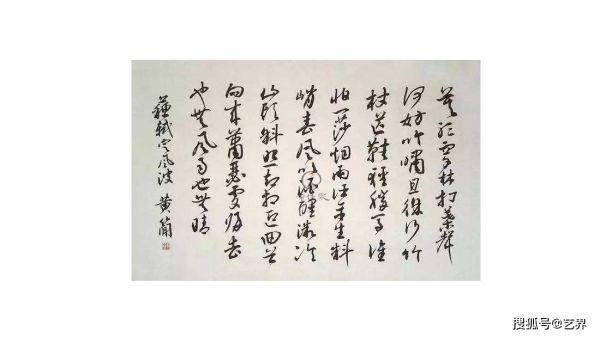 莫听穿林打葉聲
何妨吟嘯且徐行竹
杖芒鞋輕勝馬誰
怕一蓑烟雨任平生料
峭春風吹酒醒微冷
山頭斜照却相迎回首
向来蕭瑟處歸去
也無風雨也無晴
蘇軾定風波 黄簡
搜狐号@艺界